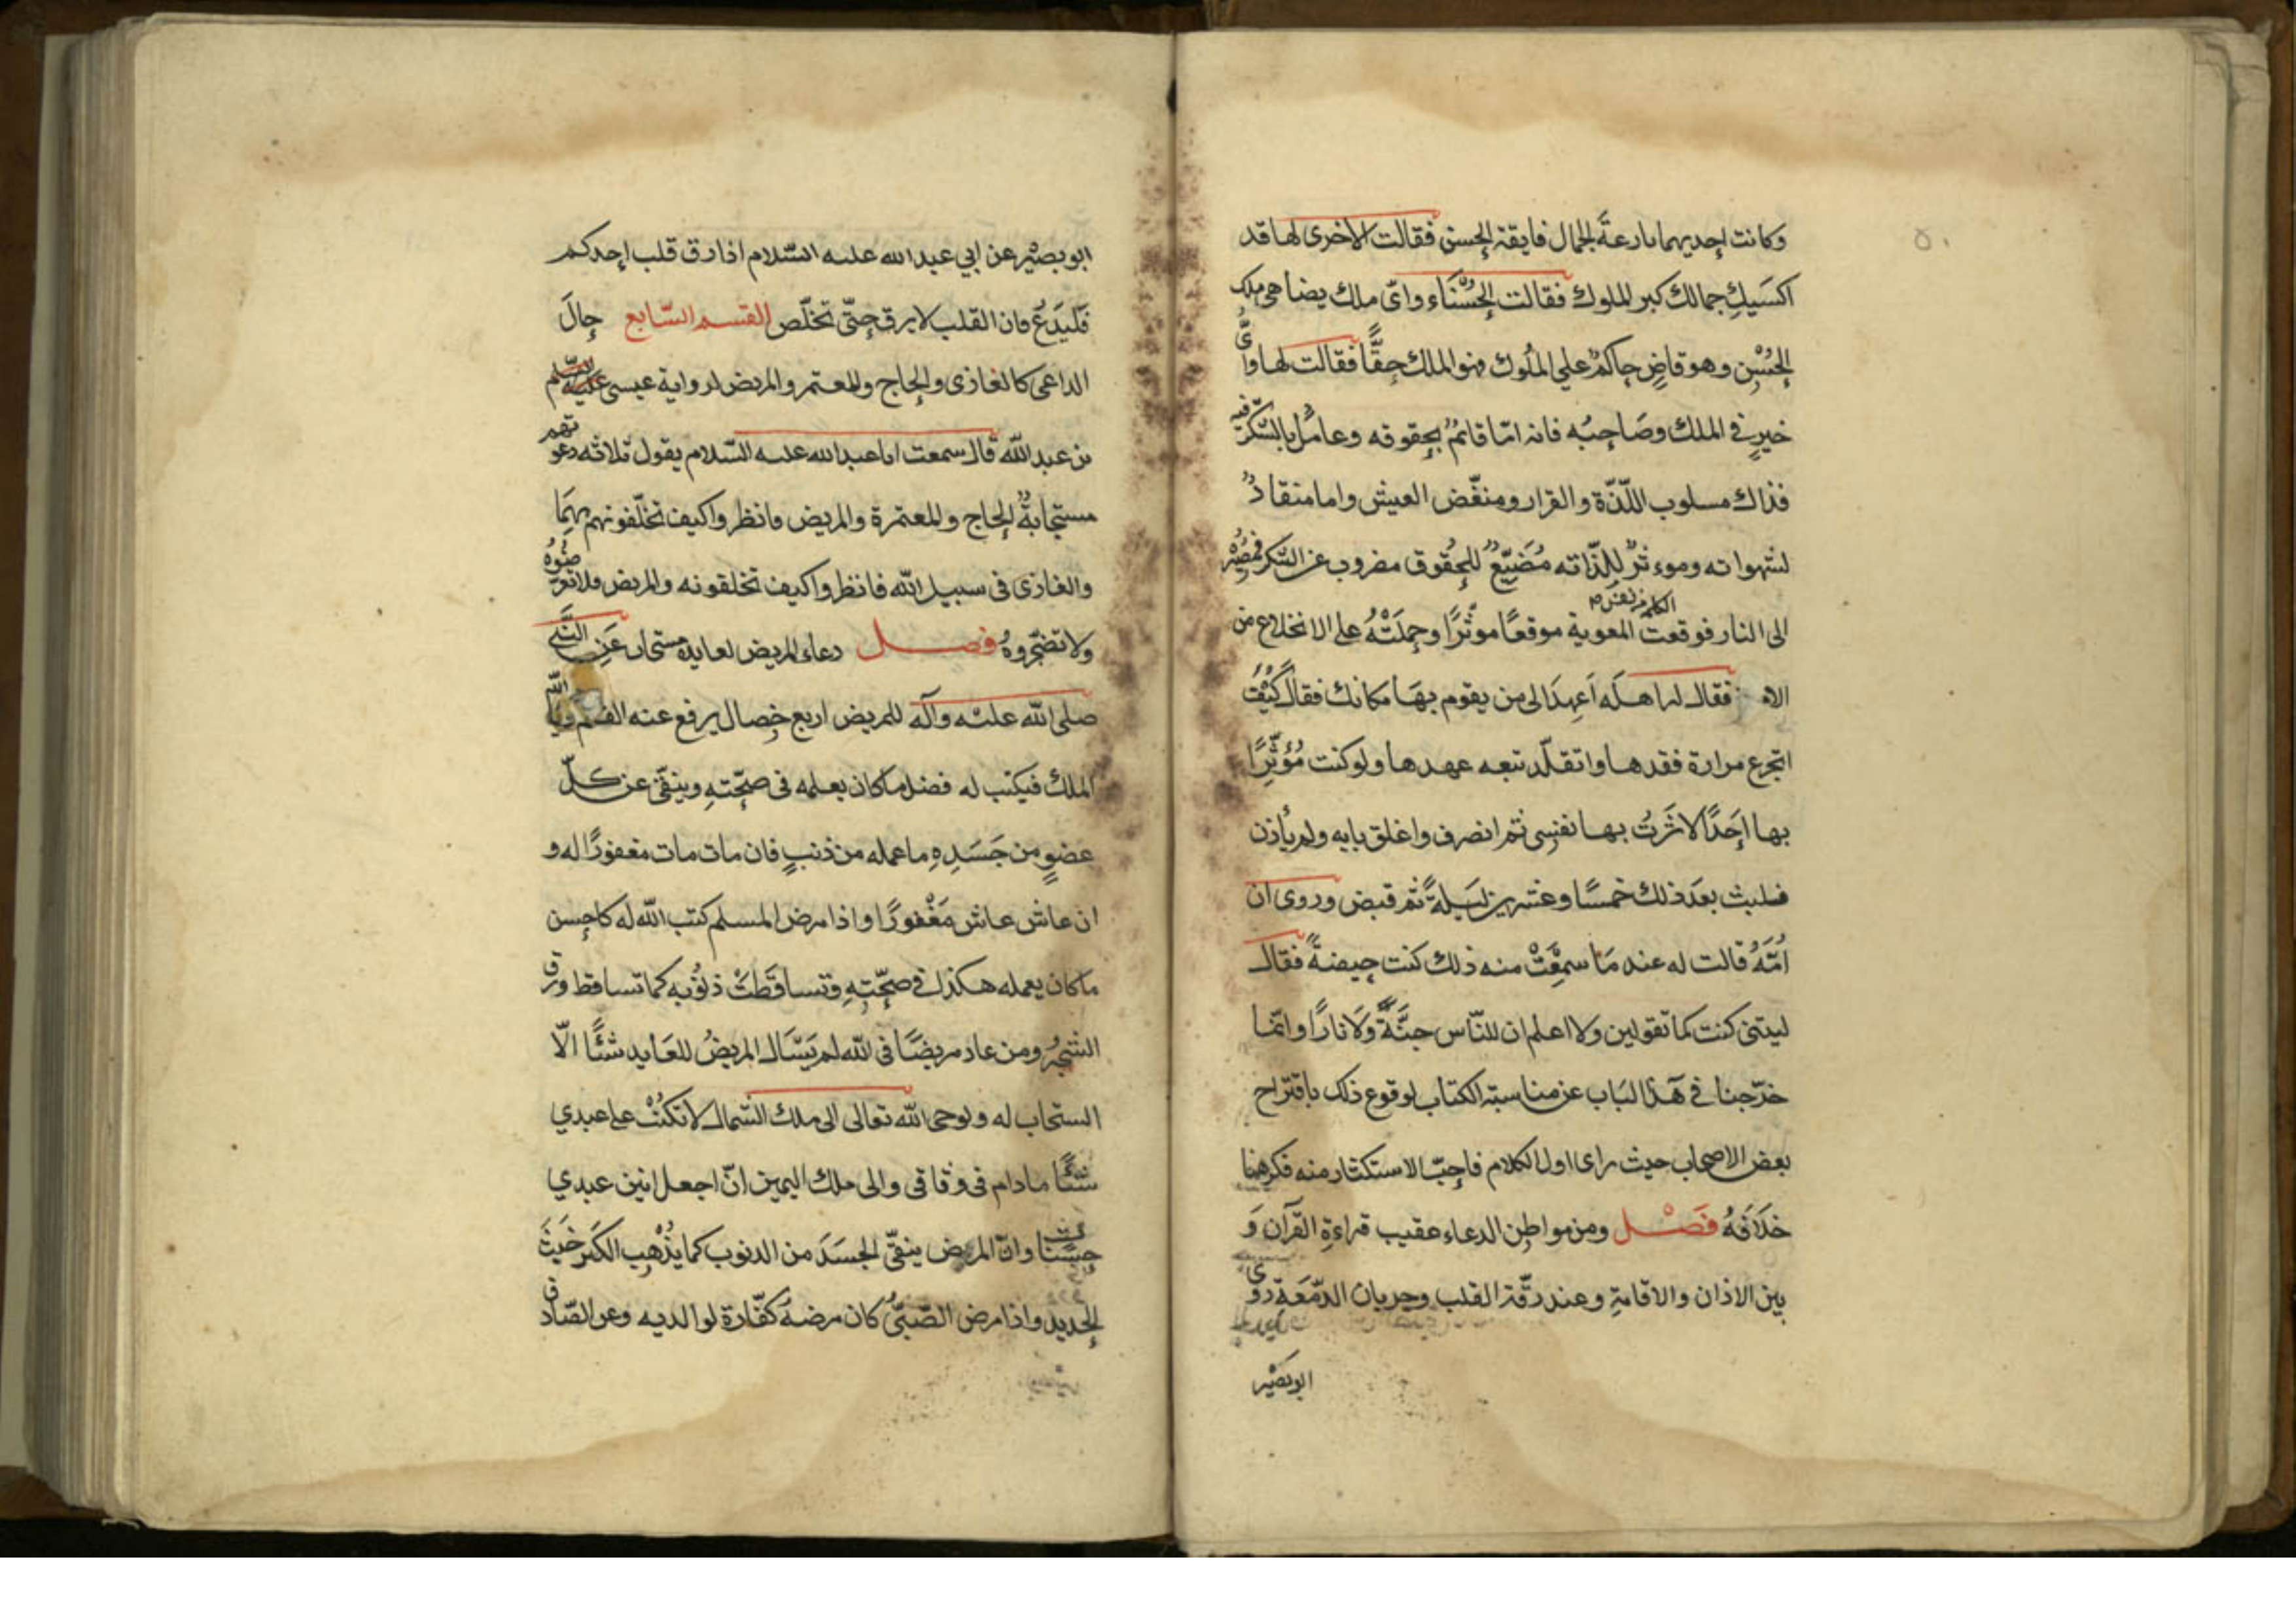 ٥٠
وكانت احديهما بارعةَ الجمال فايقة الحسن فقالت الاخرى لها قد
اكسَبكِ جمالك كبر الملوك فقالت الحُسْنَاء واىّ ملك يضاهى ملك
الحُسْنِ وهو قاضٍ حاكمٌ على المُلُوك فهو الملك حِقًّا فقالت لها واىّ
خيرٍ فى الملك وصَاحِبُه فانه امّا قائمٌ بحقوقه وعاملٌ بالشكر فيه
فذاك مسلوب اللّذّة والقرار ومنغّض العيش واما منقادٌ
لشهواته وموءثرٌ للِذّاته مُضَيّعٌ للحُقوق مضروب عن الشكر فمصيْرُه
الى النار فوقعت الكلمة نفس المعوية موقعًا موثّرًا وحمِلَتْهُ على الانخلاع من
الامر فقال له اهلَه اَعهِدَ الى من يقوم بهَا مكانك فقال كَيْفَ
اتجرع مرارة فقدها واتقلّد تبعه عهدها ولو كنت مُؤثِّرًا
بها اَحَدًا لاثَرَتُ بها نفسِى ثم انصرف واغلق بابه ولم يأذن
فلبث بعدَ ذلك خمسًا وعشرين لَيلَةً ثم قبض وروى ان
اُمّهُ قالت له عند مَا سمِعَتْ منه ذلك كنت حِيضةً فقال
ليتنى كنت كما تقولين ولا اعلم ان للنّاس جنَّةً وَلا نارًا وانّما
خرّجنا فى هَذا البَاب عن مناسبة الكتاب لوقوع ذلك باقتراح
بعض الاصحاب حيث راى اول الكلام فاحبّ الاستكثار منه فكرهنا
خلَافَهُ فَصْل ومن مواطِن الدعاء عقيب قراءةِ القرآن وَ
بين الاذان والاقامةِ وعند رقّة القلب وجريان الدّمَعَةِ روى
ابو بصَيْر
ابو بصيْر عن ابي عبد الله عليه السّلام اذا رق قلب احدكم
فَليَدَعُ فان القلب لا يرق حتّى تخلّص القسم السّابع حالَ
الداعى كالغازى والحاج والمعتمر والمريض لرواية عيسى عليه السلم
بن عبد الله قال سمعت ابا عبد الله عليه السّلام يقول ثلاثه دعوتهم
مستجابةٌ الحاج والمعتمرة والمريض فانظروا كيف تخلّفونهم بهمَا
والغازى فى سبيل الله فانظروا كيف تخلقونه والمريض فلا تعرّضُوهُ
ولا تضجّروهُ فصل دعاء المريض لعايده مستجار عَنِ النَّبي
صلى الله عليْه وآله للمريض اربع خِصال يرفع عنه القلم ويأ الله
الملك فيكتب له فضل ما كان يعلمه فى صحّتهِ وينقّى عن كلّ
عضوٍ من جَسَدِهِ ما عمله من ذنبٍ فان مات مات مغفورًا له و
ان عاش عاش مَغْفورًا واذا مرض المسلم كتب الله له كاحسن
ما كان يعمله هكذا فى صحّتِهِ وتساقَطَتْ ذنُوبه كما تساقط ورق
الشجرُ ومن عاد مريضًا فى الله لم يَسْاَل المريضُ للعَايد شئًا الّا
استجاب له ويوحى الله تعالى الى ملك الشمال لا تكتُبْ على عبدي
شئًا ما دام فى وثاقى والى ملك اليمين انّ اجعل انين عبدي
حسَنًا وانّ المريض ينقىّ الجسَدَ من الذنوب كما يذْهِب الكَير خَبَثَ
الحديد واذا مرض الصّبىُّ كان مرضهُ كفّارة لوالديه وعن الصّادق